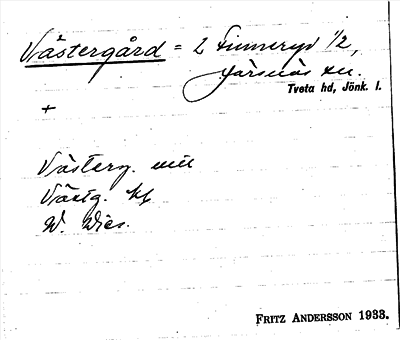 Västergård = 2 Finneryd 1/2,
Järsnäs sn.
Tveta hd, Jönk. l.
+
Västerg.
Västg.
W.
FRITZ ANDERSSON 1933.